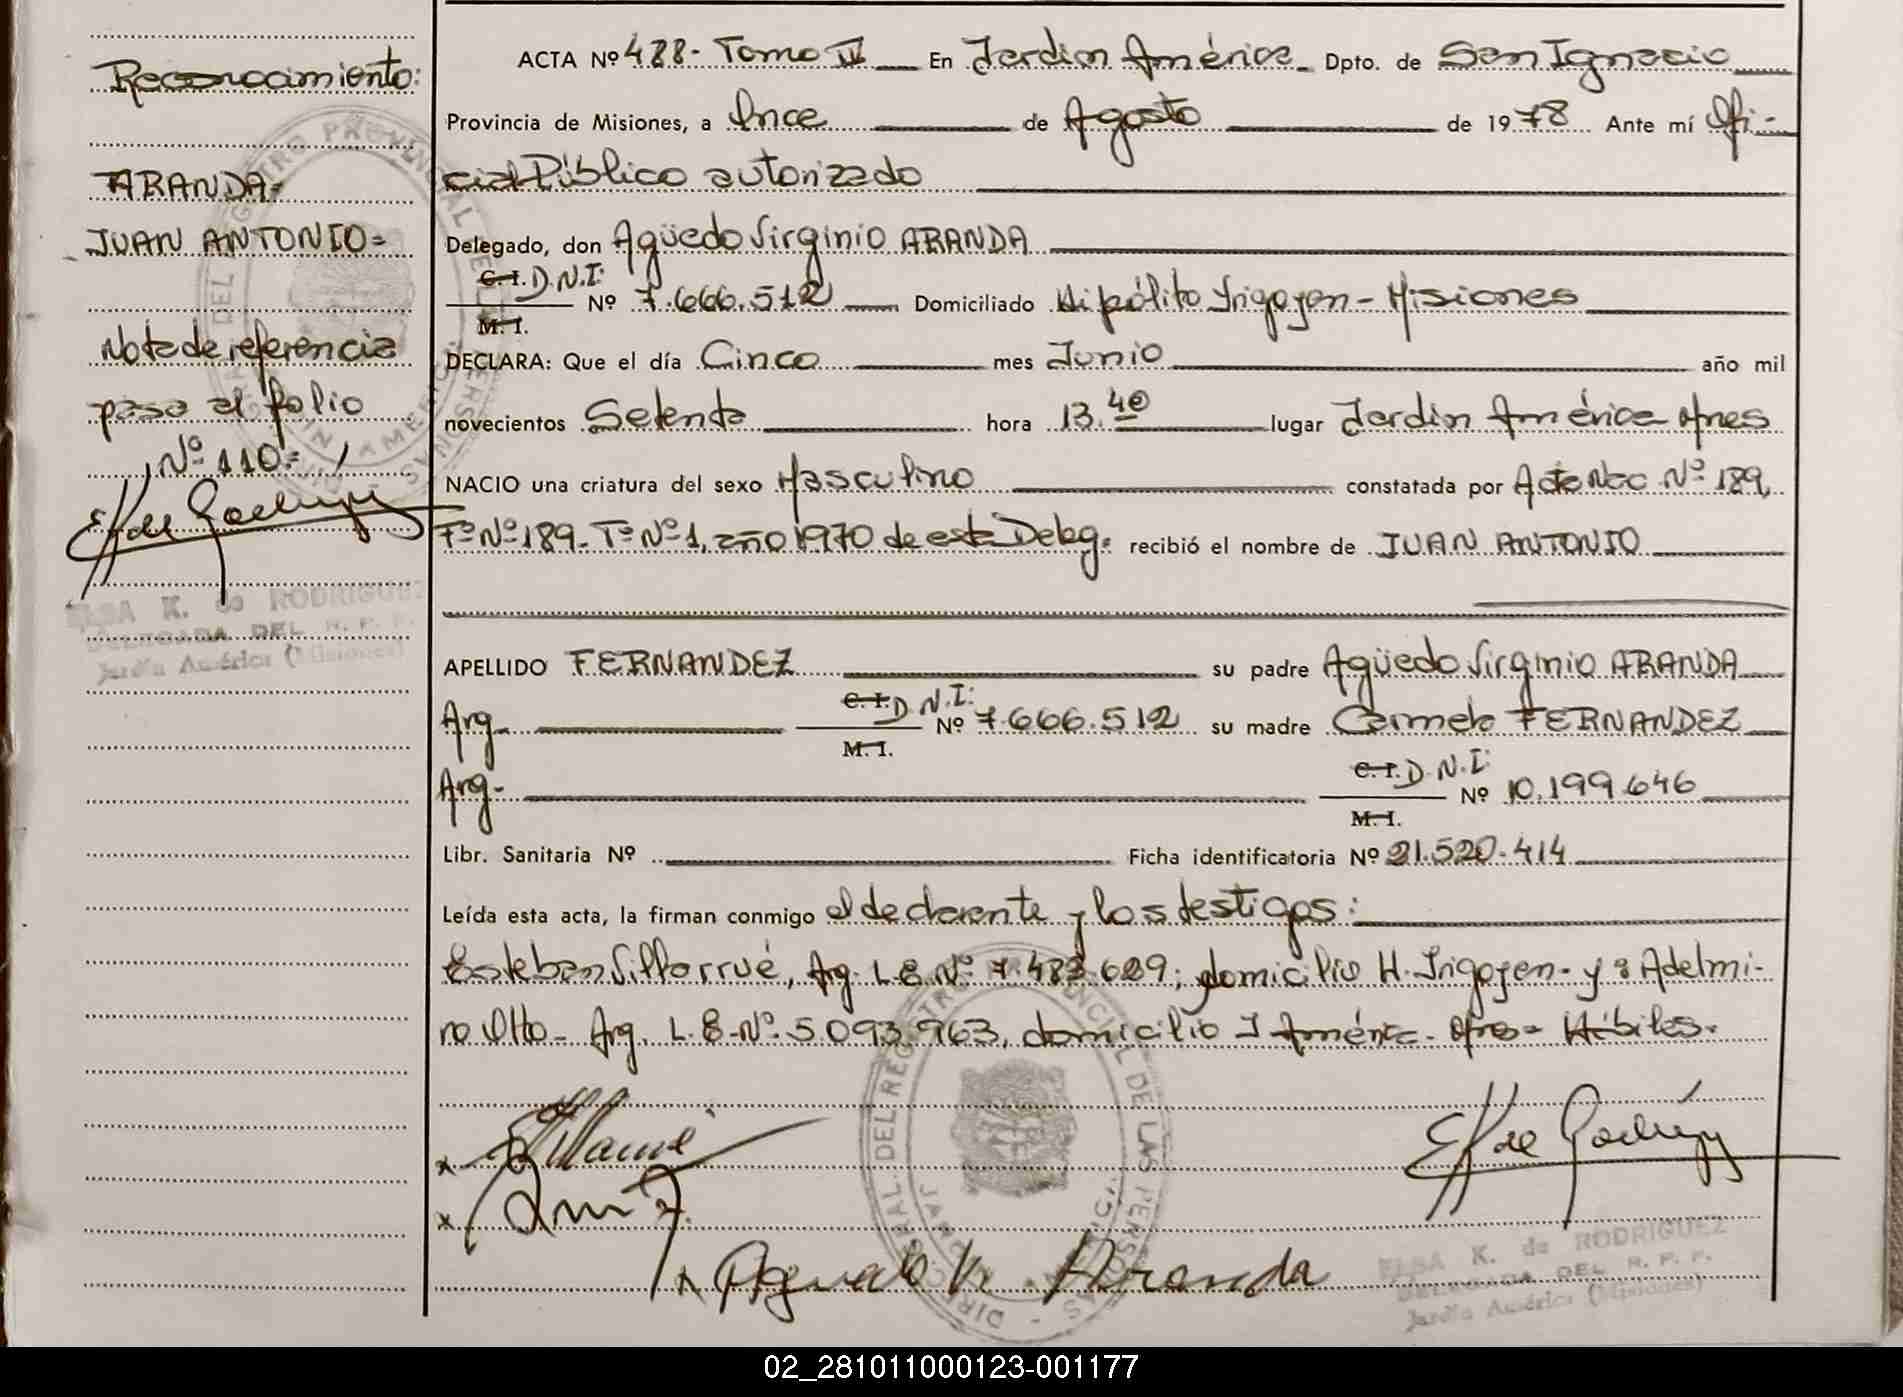 Reconocimiento:
ARANDA=
JUAN ANTONIO=
Nota de referencia
pasa al folio
Nº 110=
ELSA K. de RODRIGUEZ
DELEGADA DEL R. P. P.
Jardín América (Misiones)
ACTA Nº 488- Tomo II En Jardín América Dpto. de San Ignacio
Provincia de Misiones, a Once de Agosto de 1978 Ante mí Ofi-
cial Público autorizado
Delegado, don Agüedo Virginio ARANDA
C.I. D.N.I:
M.I. Nº 7.666.512 Domiciliado Hipólito Yrigoyen - Misiones
DECLARA: Que el día Cinco mes Junio año mil
novecientos Setenta hora 13.40 lugar Jardín América Mnes
NACIO una criatura del sexo Masculino constatada por Acta Nac Nº 189,
Fº Nº 189- Tº Nº 1, año 1970 de esta Deleg. recibió el nombre de JUAN ANTONIO
APELLIDO FERNANDEZ su padre Agüedo Virginio ARANDA
Arg- C.I. D.N.I: M.I. Nº 7.666.512 su madre Carmelo FERNANDEZ
Arg- C.I. D.N.I: M.I. Nº 10.199.646
Libr. Sanitaria Nº Ficha identificatoria Nº 21.520.414
Leída esta acta, la firman conmigo el declarante y los testigos:
Esteban Villarrué, Arg. L E Nº 7.483.629; domicilio H. Irigoyen- y: Adelmi-
ro Otto- Arg. L.E-Nº 5.093.963, domicilio J América- Mnes= Hábiles.
DIRECCION GRAL. DEL REGISTRO PROVINCIAL DE LAS PERSONAS
x
x
x Aguedo V. Aranda
ELSA K. de RODRIGUEZ
DELEGADA DEL R. P. P.
Jardín América (Misiones)
02_281011000123-001177